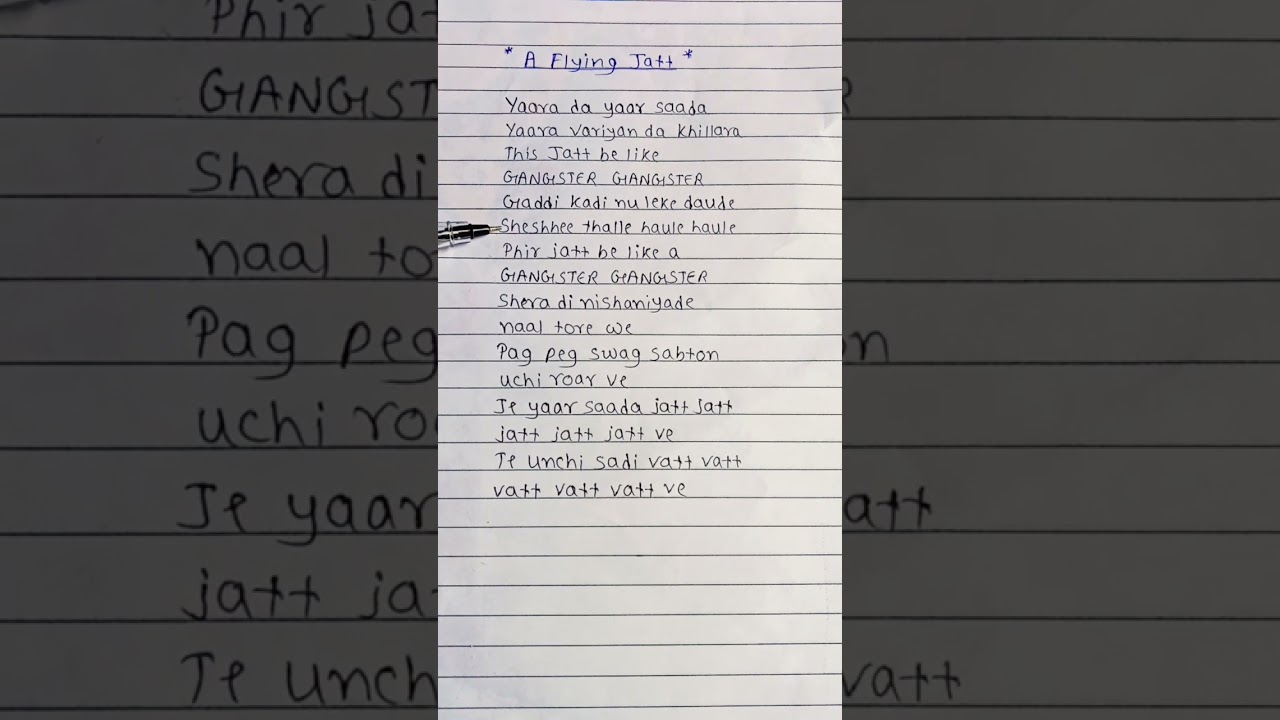 * A Flying Jatt *
Yaara da yaar saada
Yaara variyan da khillara
This Jatt be like
GANGSTER GANGSTER
Gaddi kadi nu leke daude
Sheshhee thalle haule haule
Phir jatt be like a
GANGSTER GANGSTER
Shera di nishaniyade
naal tore we
Pag peg swag sabton
uchi roar ve
Je yaar saada jatt jatt
jatt jatt jatt ve
Te unchi sadi vatt vatt
vatt vatt vatt ve